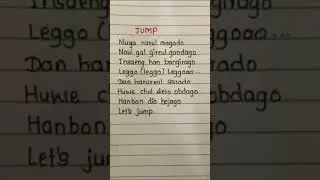 JUMP
Nugo narul mogodo
Nawi gal gireul gandago
Insaeng han bangirago
Leggo (leggo) Leggooo...
Dan harureul sarado
Huwe chol dieto obdago
Hanbon dio bojago
Let's jump